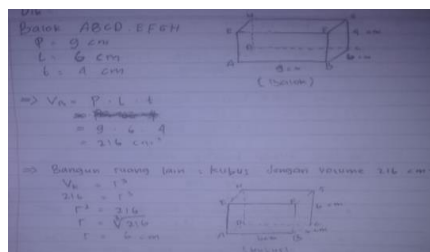 Dik :
Balok ABCD . EFGH
P = 9 cm
l = 6 cm
t = 4 cm
H
E
F
4 cm
6 cm
A
9 cm
B
(Balok)
=> VB = P . l . t
= 9 . 6 . 4
= 216 cm³
=> Bangun ruang lain : kubus dengan volume 216 cm
Vk = r³
216 = r³
r³ = 216
r = ∛216
r = 6 cm
H
E
F
6 cm
A
6cm
B
(kubus)